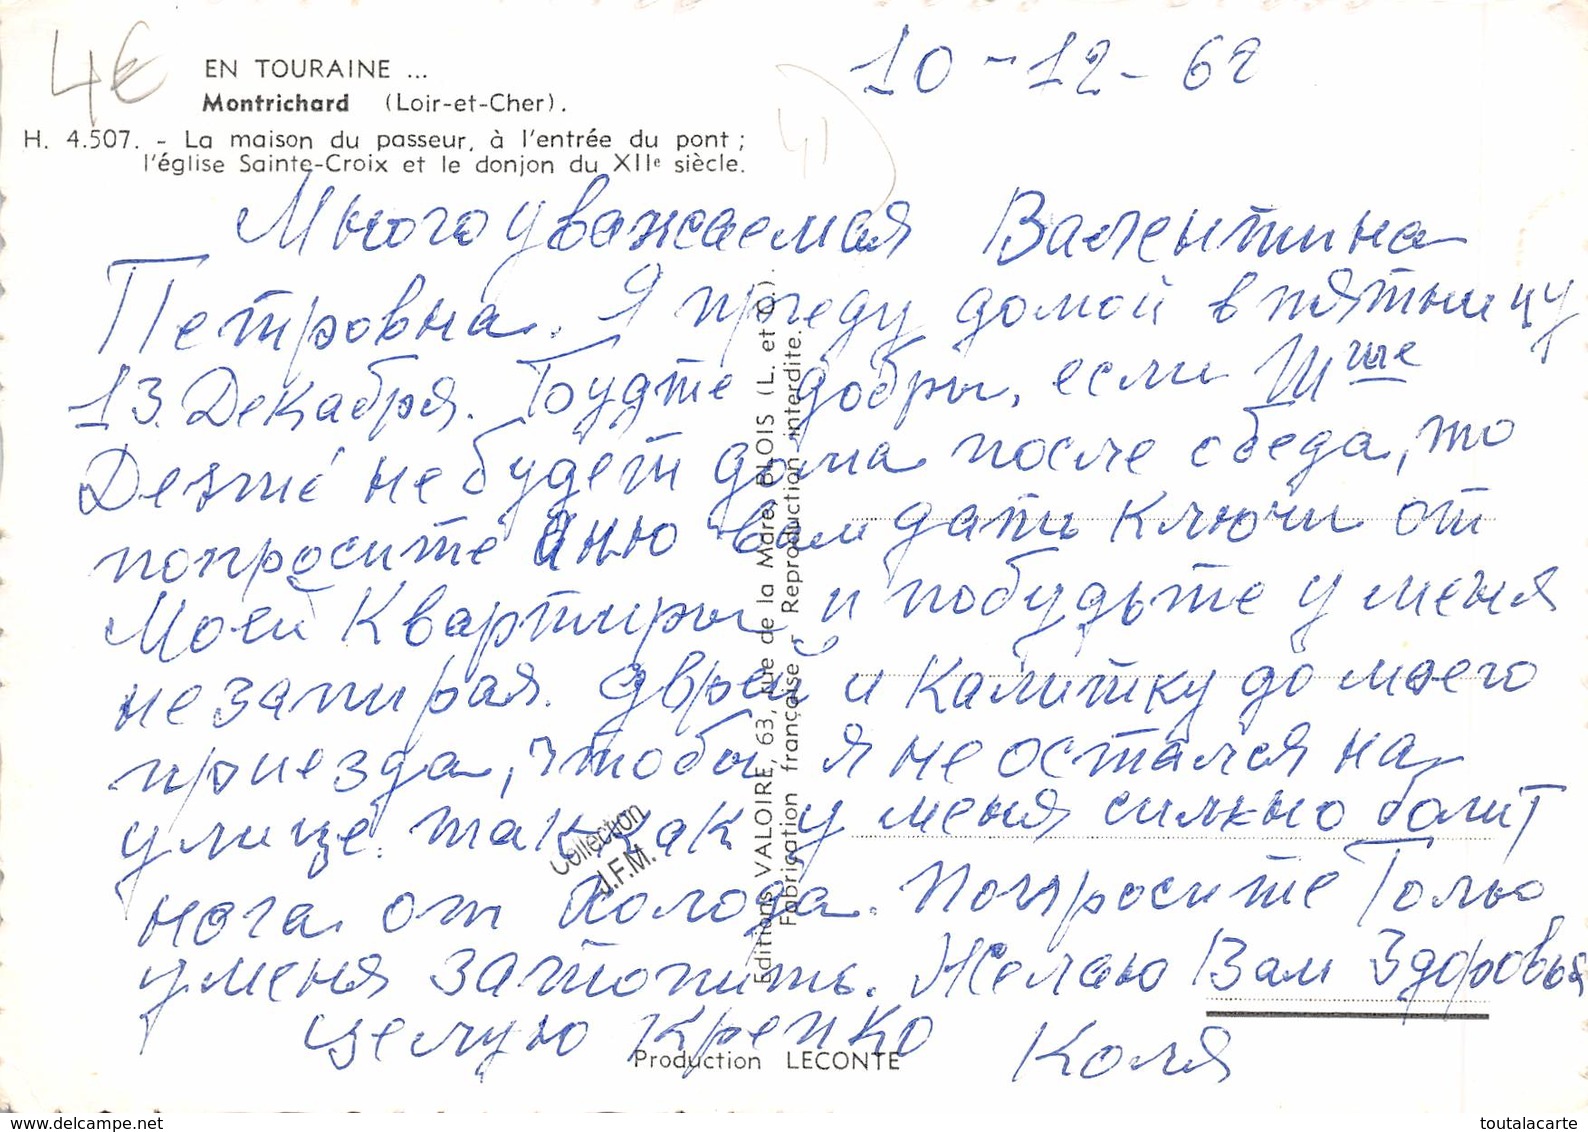 4€
EN TOURAINE ...
Montrichard (Loir-et-Cher).
H. 4.507. - La maison du passeur, à l'entrée du pont ;
l'église Sainte-Croix et le donjon du XIIe siècle.
41
10-12-68
Многоуважаемая Валентина
Петровна. Я приеду домой в пятницу
13. Декабря. Будте добры, если
не будет дома после обеда, то
попросите Аню вам дать ключи от
Моей Квартиры и побудьте у меня
не запирая дврей и Калитку до моего
приезда, чтобы я не остался на
улице. так как у меня сильно болит
нога от холода. Попросите Толю
у меня затопить. Желаю Вам Здоровья
целую Крепко Коля
Editions VALOIRE, 63, rue de la Mare, BLOIS (L. et C.).
Fabrication française - Reproduction interdite.
Collection
J.F.M.
Production LECONTE
www.delcampe.net
toutalacarte